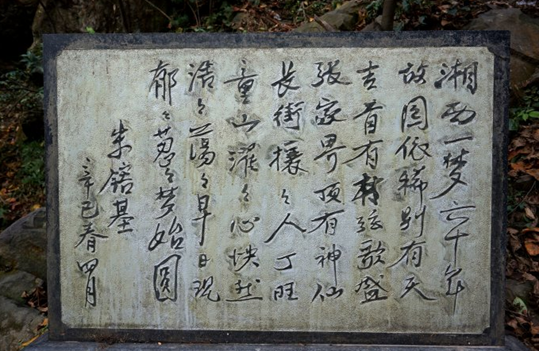 湘西一梦六十年
故園依稀别有天
吉首有材弦歌盛
張家界頂有神仙
長街攘々人丁旺
童山濯々心怏然
浩々蕩々早日現
郁々葱々梦始圓
朱镕基
辛巳春四月